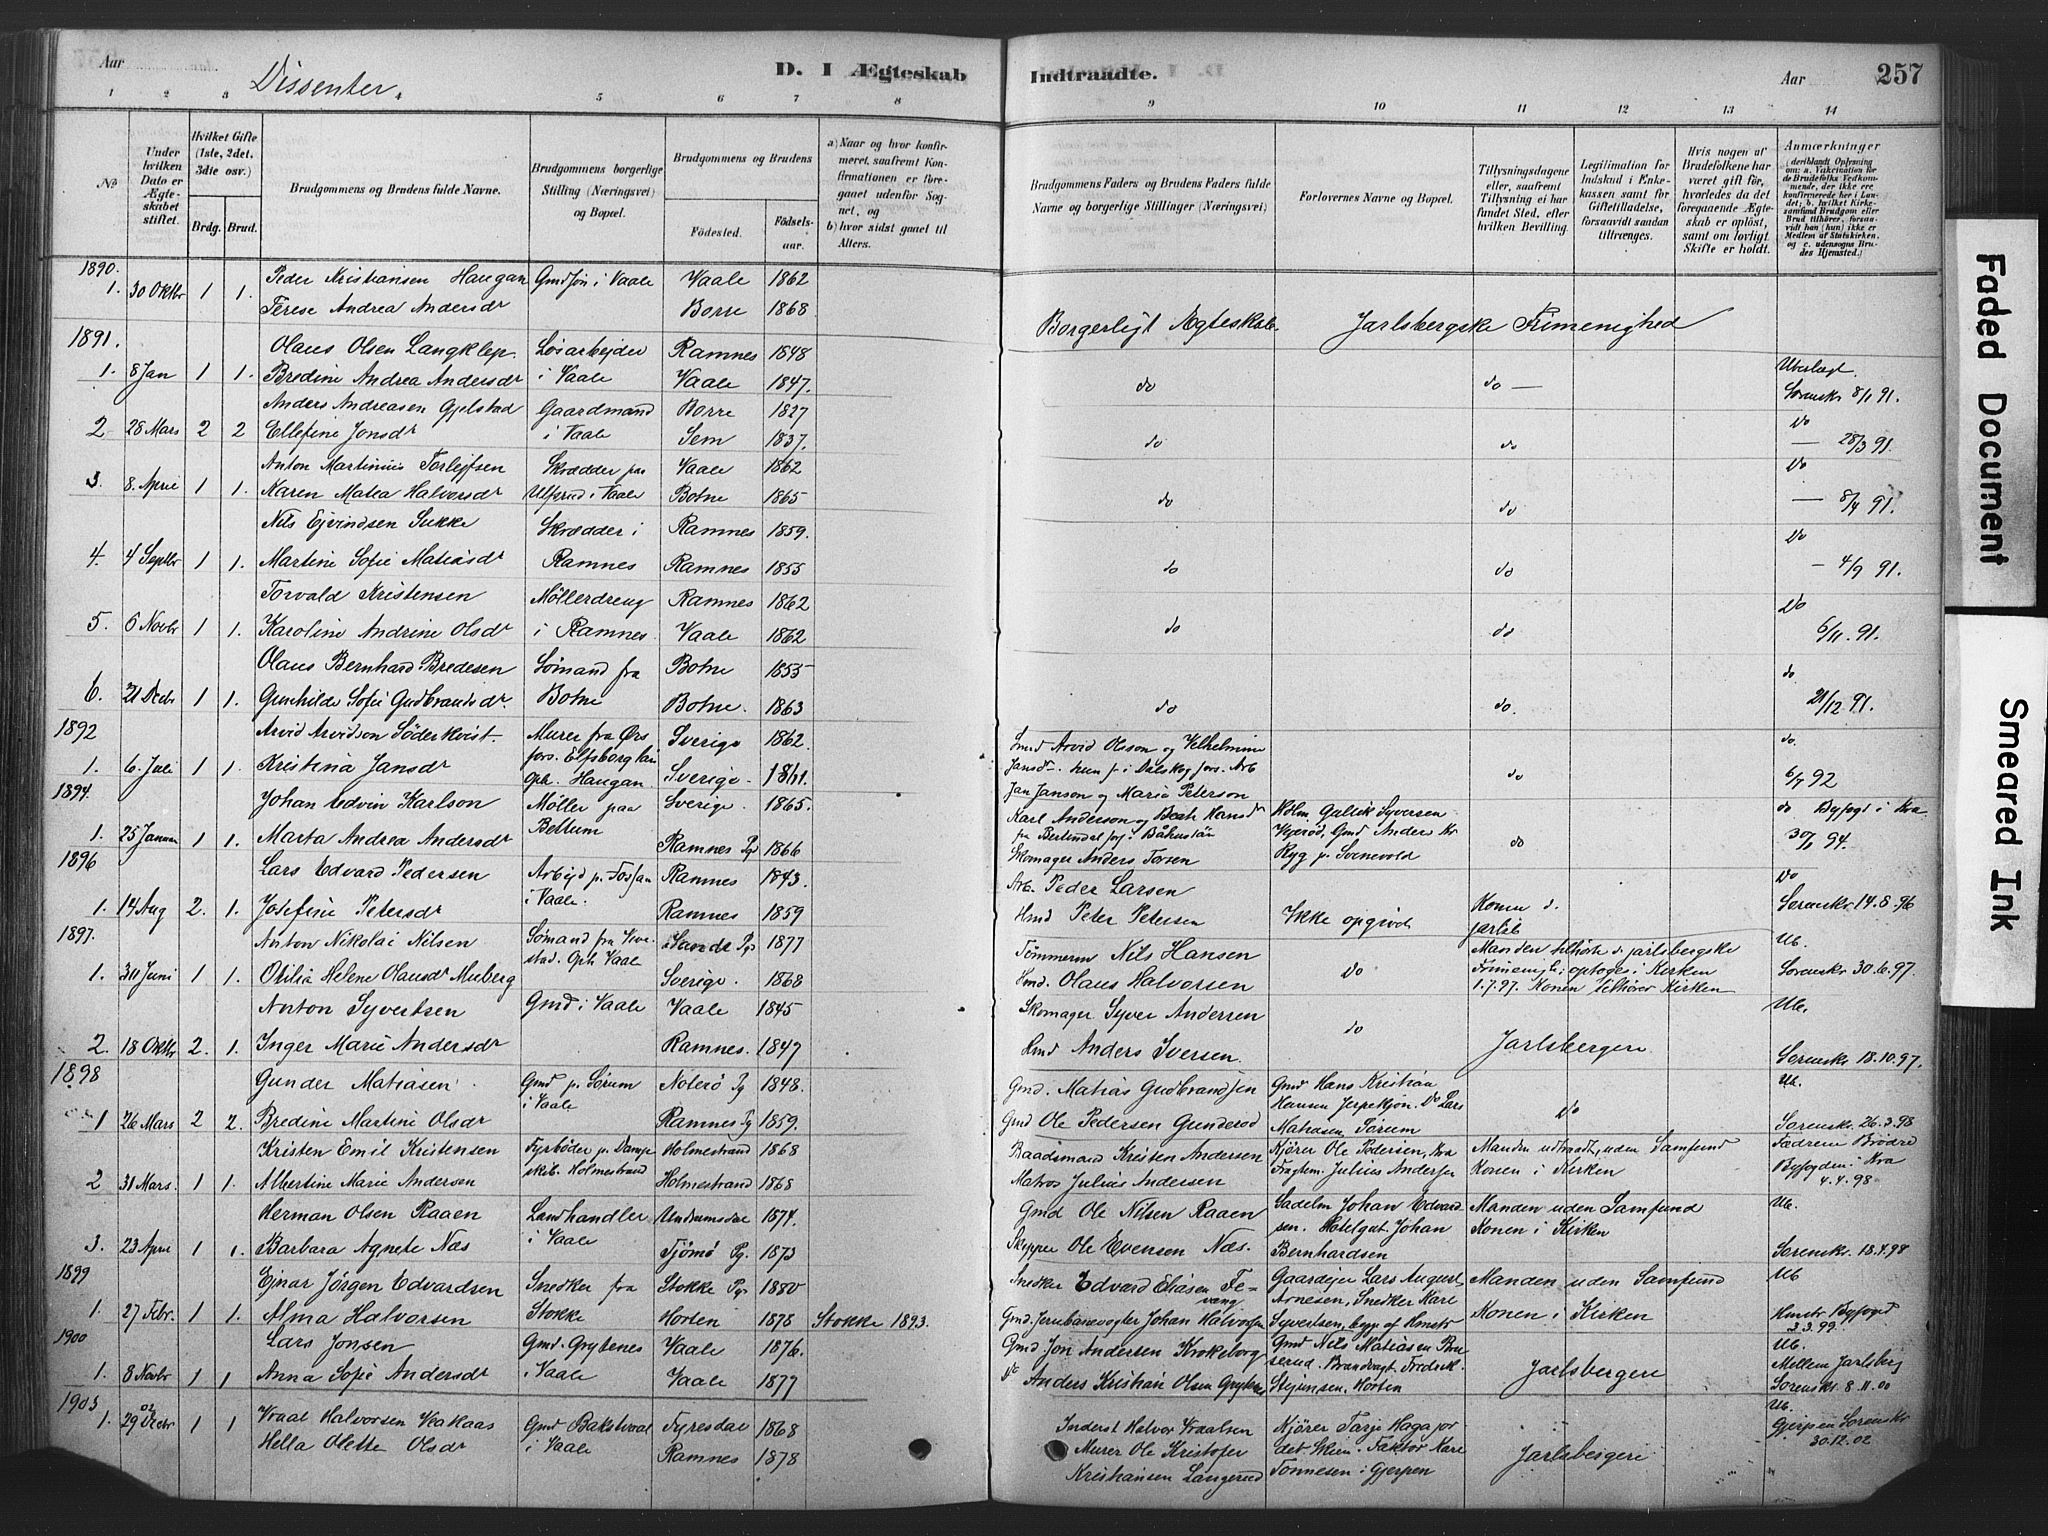 Aar
Dissenter
D. I Ægteskab
Indtraadte.
Aar
257
1 2 3 4 5 6 7 8 9 10 11 12 13 14
No
Under hvilken Dato er Ægteskabet stiftet.
Hvilket Gifte (1ste, 2det, 3die osv.)
Brdg. Brud.
Brudgommens og Brudens fulde Navne.
Brudgommens borgerlige Stilling (Næringsvei) og Bopæl.
Brudgommens og Brudens
Fødested.
Fødselsaar.
a) Naar og hvor konfirmeret, saafremt Konfirmationen er foregaaet udenfor Sognet, og
b) hvor sidst gaaet til Alters.
Brudgommens Faders og Brudens Faders fulde Navne og borgerlige Stillinger (Næringsvei)
Forlovernes Navne og Bopæl.
Tillysningsdagene eller, saafremt Tillysning ei har fundet Sted, efter hvilken Bevilling.
Legitimation for Indskud i Enkekassen samt for Giftetilladelse, forsaavidt saadan tiltrænges.
Hvis nogen af Brudefolkene har været gift før, hvorledes da det foregaaende Ægteskab er opløst, samt om lovligt Skifte er holdt.
Anmærkninger
1890.
1. 30 Oktbr 1 1. Peder Kristiansen Haugan Gmd Søn i Vaale Vaale 1862
Terese Andrea Andersdr Borre 1868
Borgerligt Ægteskab. Jarlsbergske Frimenighed
1891.
Olaus Olsen Langklep. Løsarbejder Ramnes 1848
1. 8 Jan 1 1. Bredine Andrea Andersdr i Vaale Vaale 1847. do do —
Sorenskr 8/1 91.
Anders Andreasen Gjelstad Gaardmand Borre 1827
2. 28 Mars 2 2 Ellefine Jonsdr i Vaale Sem 1837. do do
Do — 28/3 91.
Anton Martinius Torlejfsen Skrædder paa Vaale 1862
3. 8. April 1 1. Karen Matea Halvorsdr i Vaale Botne 1865 do do
Do — 8/4 91.
Nils Ejvindsen Sukke Skrædder i Ramnes 1859.
4. 4 Septbr 1 1. Martine Sofie Matiasdr Ramnes Ramnes 1855 do do
Do — 4/9 91.
Torvald Kristensen Møllerdreng Ramnes 1862
5. 6 Novbr 1 1. Karoline Andrine Olsdr i Ramnes. Vaale 1862 do do
Do 6/11. 91.
Olaus Bernhard Bredesen Sømand fra Botne 1855
6. 21 Decbr 1 1. Gunhilde Sofie Gudbrandsdr Botne Botne. 1863 do do.
do 21/12. 91.
1892
Arvid Arvidson Söderkvist. Murer fra Ørs Sverige 1862.
1. 6. Juli 1 1. Kristina Jansdr fors. Elfsborg län Oph. Haugan. Sverige.
Smd Arvid Olsson og Vilhelmine Jansdr. hun f. i Dalskog fors. Arb Jan Janson og Maria Peterson
do do. 6/7 92
1894.
Johan Edvin Karlson Møller paa Sverige. 1865.
1. 25 Januar 1 1. Marta Andrea Andersdr Bettum Ramnes Pg 1866
Karl Anderson og Beate Hansdr
Skomager Anders Torsen
Hdlm. Gullik Syversen
do do Byfogd i 30/1 94.
1896
Lars Edvard Pedersen Arbejd p. Fossan Ramnes 1843.
1. 14 Aug 2. 1. Josefine Petersdr i Vaale. Ramnes 1859
Arb. Peder Larsen
Hmd Peter Petersen Ikke opgivet Konen d. jarlsb
Do Sorenskr 14.8.96
1897.
Anton Nikolai Nilsen Sømand fra Sande Pg 1877
1. 30 Juni 1 1. Otilia Helene Olausdr Muberg Oph Vaale Sverige. 1868
Tømmerm Nils Hansen
Hmd. Olaus Halvorsen Do
Manden tilhørte d. jarlsbergske Frimenigh. optoges i Kirken 1.7.97. Konen tilhører Kirken
Ub. Sorenskr 30.6.97.
Anton Syvertsen Gmd i Vaale Vaale 1845
2. 18 Oktbr 2. 1. Inger Marie Andersdr Ramnes. 1847
Skomager Syver Andersen
Hmd Anders Iversen. do Jarlsbergere
Ub. Sorenskr 18.10.97.
1898
Gunder Matiasen Gmd p. Sørum Nøterø Pg 1848.
1 26 Mars 2 2. Bredine Martine Olsdr i Vaale Ramnes Pg 1859.
Gmd. Matias Gudbrandsen
Gmd Ole Pedersen Gunderød
Gmd Hans Kristian Hansen Jerpekjøn. Do Lars Matiasen Sørum
Do Ub. Sorenskr. 26.3.98
Kristen Emil Kristensen Fyrbøder p. Dampskib. Holmestrand Holmestrand 1868
2 31 Mars. 1 1. Albertine Marie Andersen Holmestrand 1868
Baadsmand Kristen Andersen
Matros Julius Andersen
Kjører Ole Pedersen,
Fragtem. Julius Andersen
Manden udtraadt, uden Samfund Konen i Kirken
Byfogden i 4.4.98
Herman Olsen Raaen Landhandler Undrumsdal 1874.
3. 23 April 1 1. Barbara Agnete Næs i Vaale Tjømø Pg. 1873
Gmd Ole Nilsen Raaen
Skipper Ole Evensen Næs.
Sadelm Johan Edvardsen. Johan Bernhardsen
Manden uden Samfund Konen i Kirken
Ub. Sorenskr. 18.4.98
1899
Ejnar Jörgen Edvardsen Snedker fra Stokke Pg 1880
1. 27 Febr. 1 1. Alma Halvorsen Stokke Horten 1878 Stokke 1893.
Snedker Edvard Eliasen Fevang
Gmd. Jernbanevogter Johan Halvorsen
Gaardejer Lars August Arnesen, Snedker Karl Syvertsen, begge af Hmstr
Manden uden Samfund Konen i Kirken
Ub Hmstr Byfogd 3.3.99.
1900
Lars Jonsen Gmd. Grytenes Vaale 1876.
1. 8 Novbr 1 1 Anna Sofie Andersdr i Vaale Vaale 1877
Gmd Jon Andersen Krokeborg
Do Anders Kristian Olsen Grytnes
Gmd Nils Matiasen
Brandvagt Fredrik Horten
Jarlsbergere
Ub. Mellem Jarlsberg Sorenskr. 8.11.00
1903
1. 29 Decbr 02 1 1. Vraal Halvorsen Vaakaas Gmd Bakstvaal Fyresdal 1868
Hella Olette Olsdr i Vaale Ramnes 1878
Inderst Halvor Vraalsen
Murer Ole Kristofer Kristiansen Langerud
Kjører Tarje Hagajordet Skien. Faktor Karl Tonnesen i Gjerpen
Jarlsbergere
Ub. Gjerpen Sorenskr 30.12.02
Faded Document
Smeared Ink